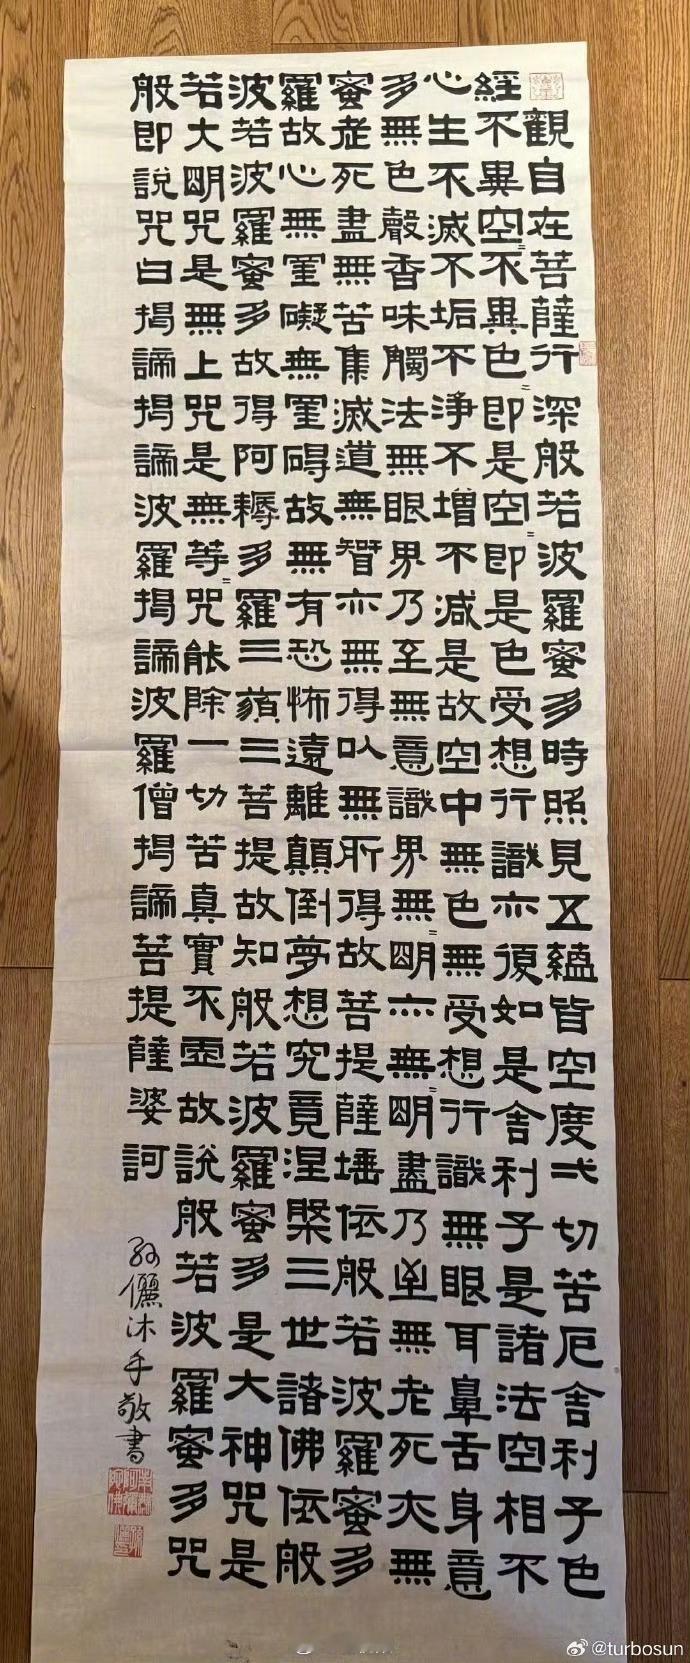 般若波羅蜜多心經
觀自在菩薩行深般若波羅蜜多時照見五蘊皆空度弌切苦厄舍利子色
不異空〻不異色〻即是空〻即是色受想行識亦復如是舍利子是諸法空相不
生不滅不垢不淨不增不減是故空中無色無受想行識無眼耳鼻舌身意
無色聲香味觸法無眼界乃至無意識界無〻明亦無〻明盡乃至無老死亦無
老死盡無苦集滅道無智亦無得以無所得故菩提薩埵依般若波羅蜜多
故心無罣礙無罣碍故無有恐怖遠離顛倒夢想究竟涅槃三世諸佛依般
若波羅蜜多故得阿耨多羅三藐三菩提故知般若波羅蜜多是大神咒是
大明咒是無上咒是無等〻咒能除一切苦真實不虛故說般若波羅蜜多咒
即說咒曰揭諦揭諦波羅揭諦波羅僧揭諦菩提薩婆訶
孫儷沐手敬書
@turbosun